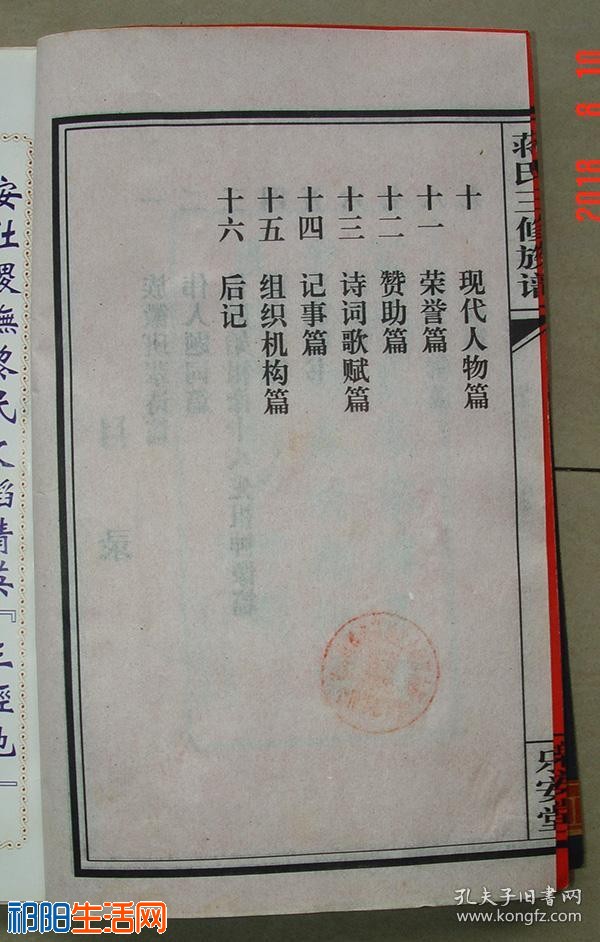 蒋氏三修族谱
十 现代人物篇
十一 荣誉篇
十二 赞助篇
十三 诗词歌赋篇
十四 记事篇
十五 组织机构篇
十六 后记
乐安堂
安社稷撫黎民文韜精英『三經也』
2018 6 10
祁阳生活网
孔夫子旧书网
www.kongfz.com